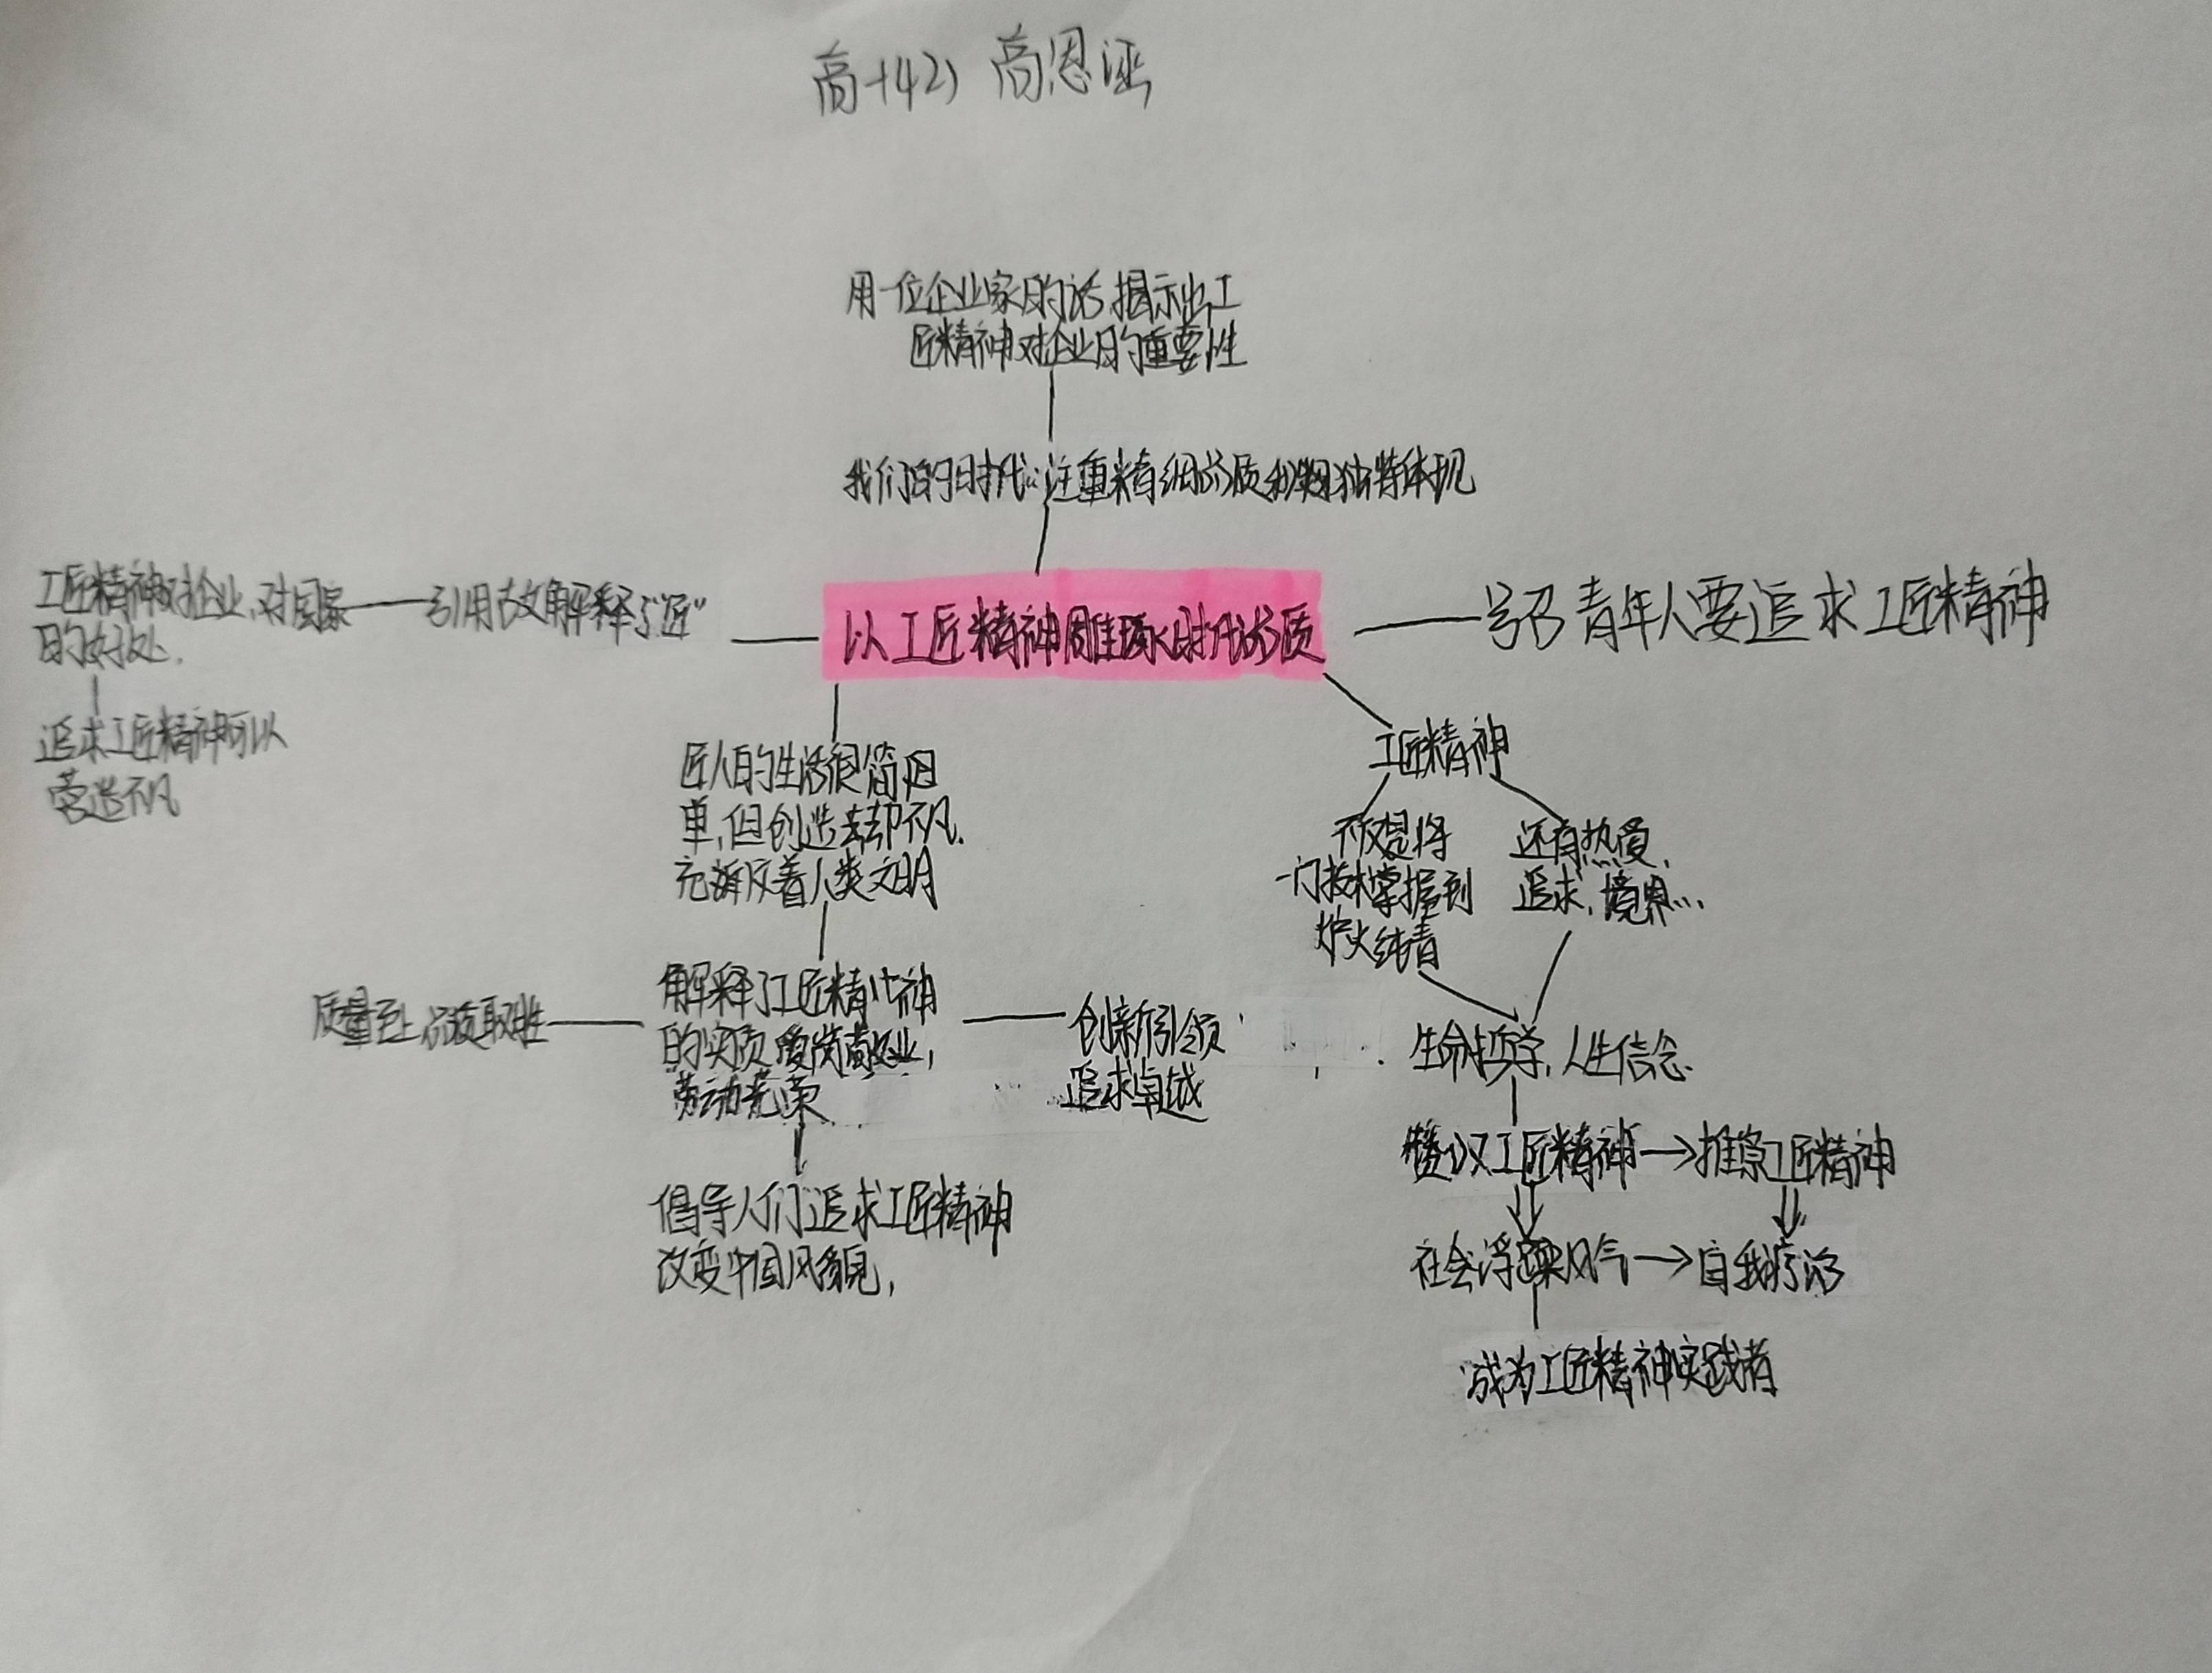 高一(42) 高恩泽
用一位企业家的话,揭示出工
匠精神对企业的重要性
我们的时代:注重精细品质和独特体现
以工匠精神雕琢时代品质
号召青年人要追求工匠精神
引用古文解释了"匠"
工匠精神对企业、对国家
的好处.
追求工匠精神可以
营造不凡
匠人的生活很简
单,但创造去却不凡.
着人类文明
解释了工匠精神
的实质 爱岗敬业,
劳动光荣
质量至上 品质取胜
创新引领
追求卓越
倡导人们追求工匠精神
改变中国风貌,
工匠精神
不仅是将
一门技术掌握到
炉火纯青
还有热爱,
追求,境界...
生命哲学,人生信念.
工匠精神→推崇工匠精神
社会浮躁风气→自我疗治
成为工匠精神实践者